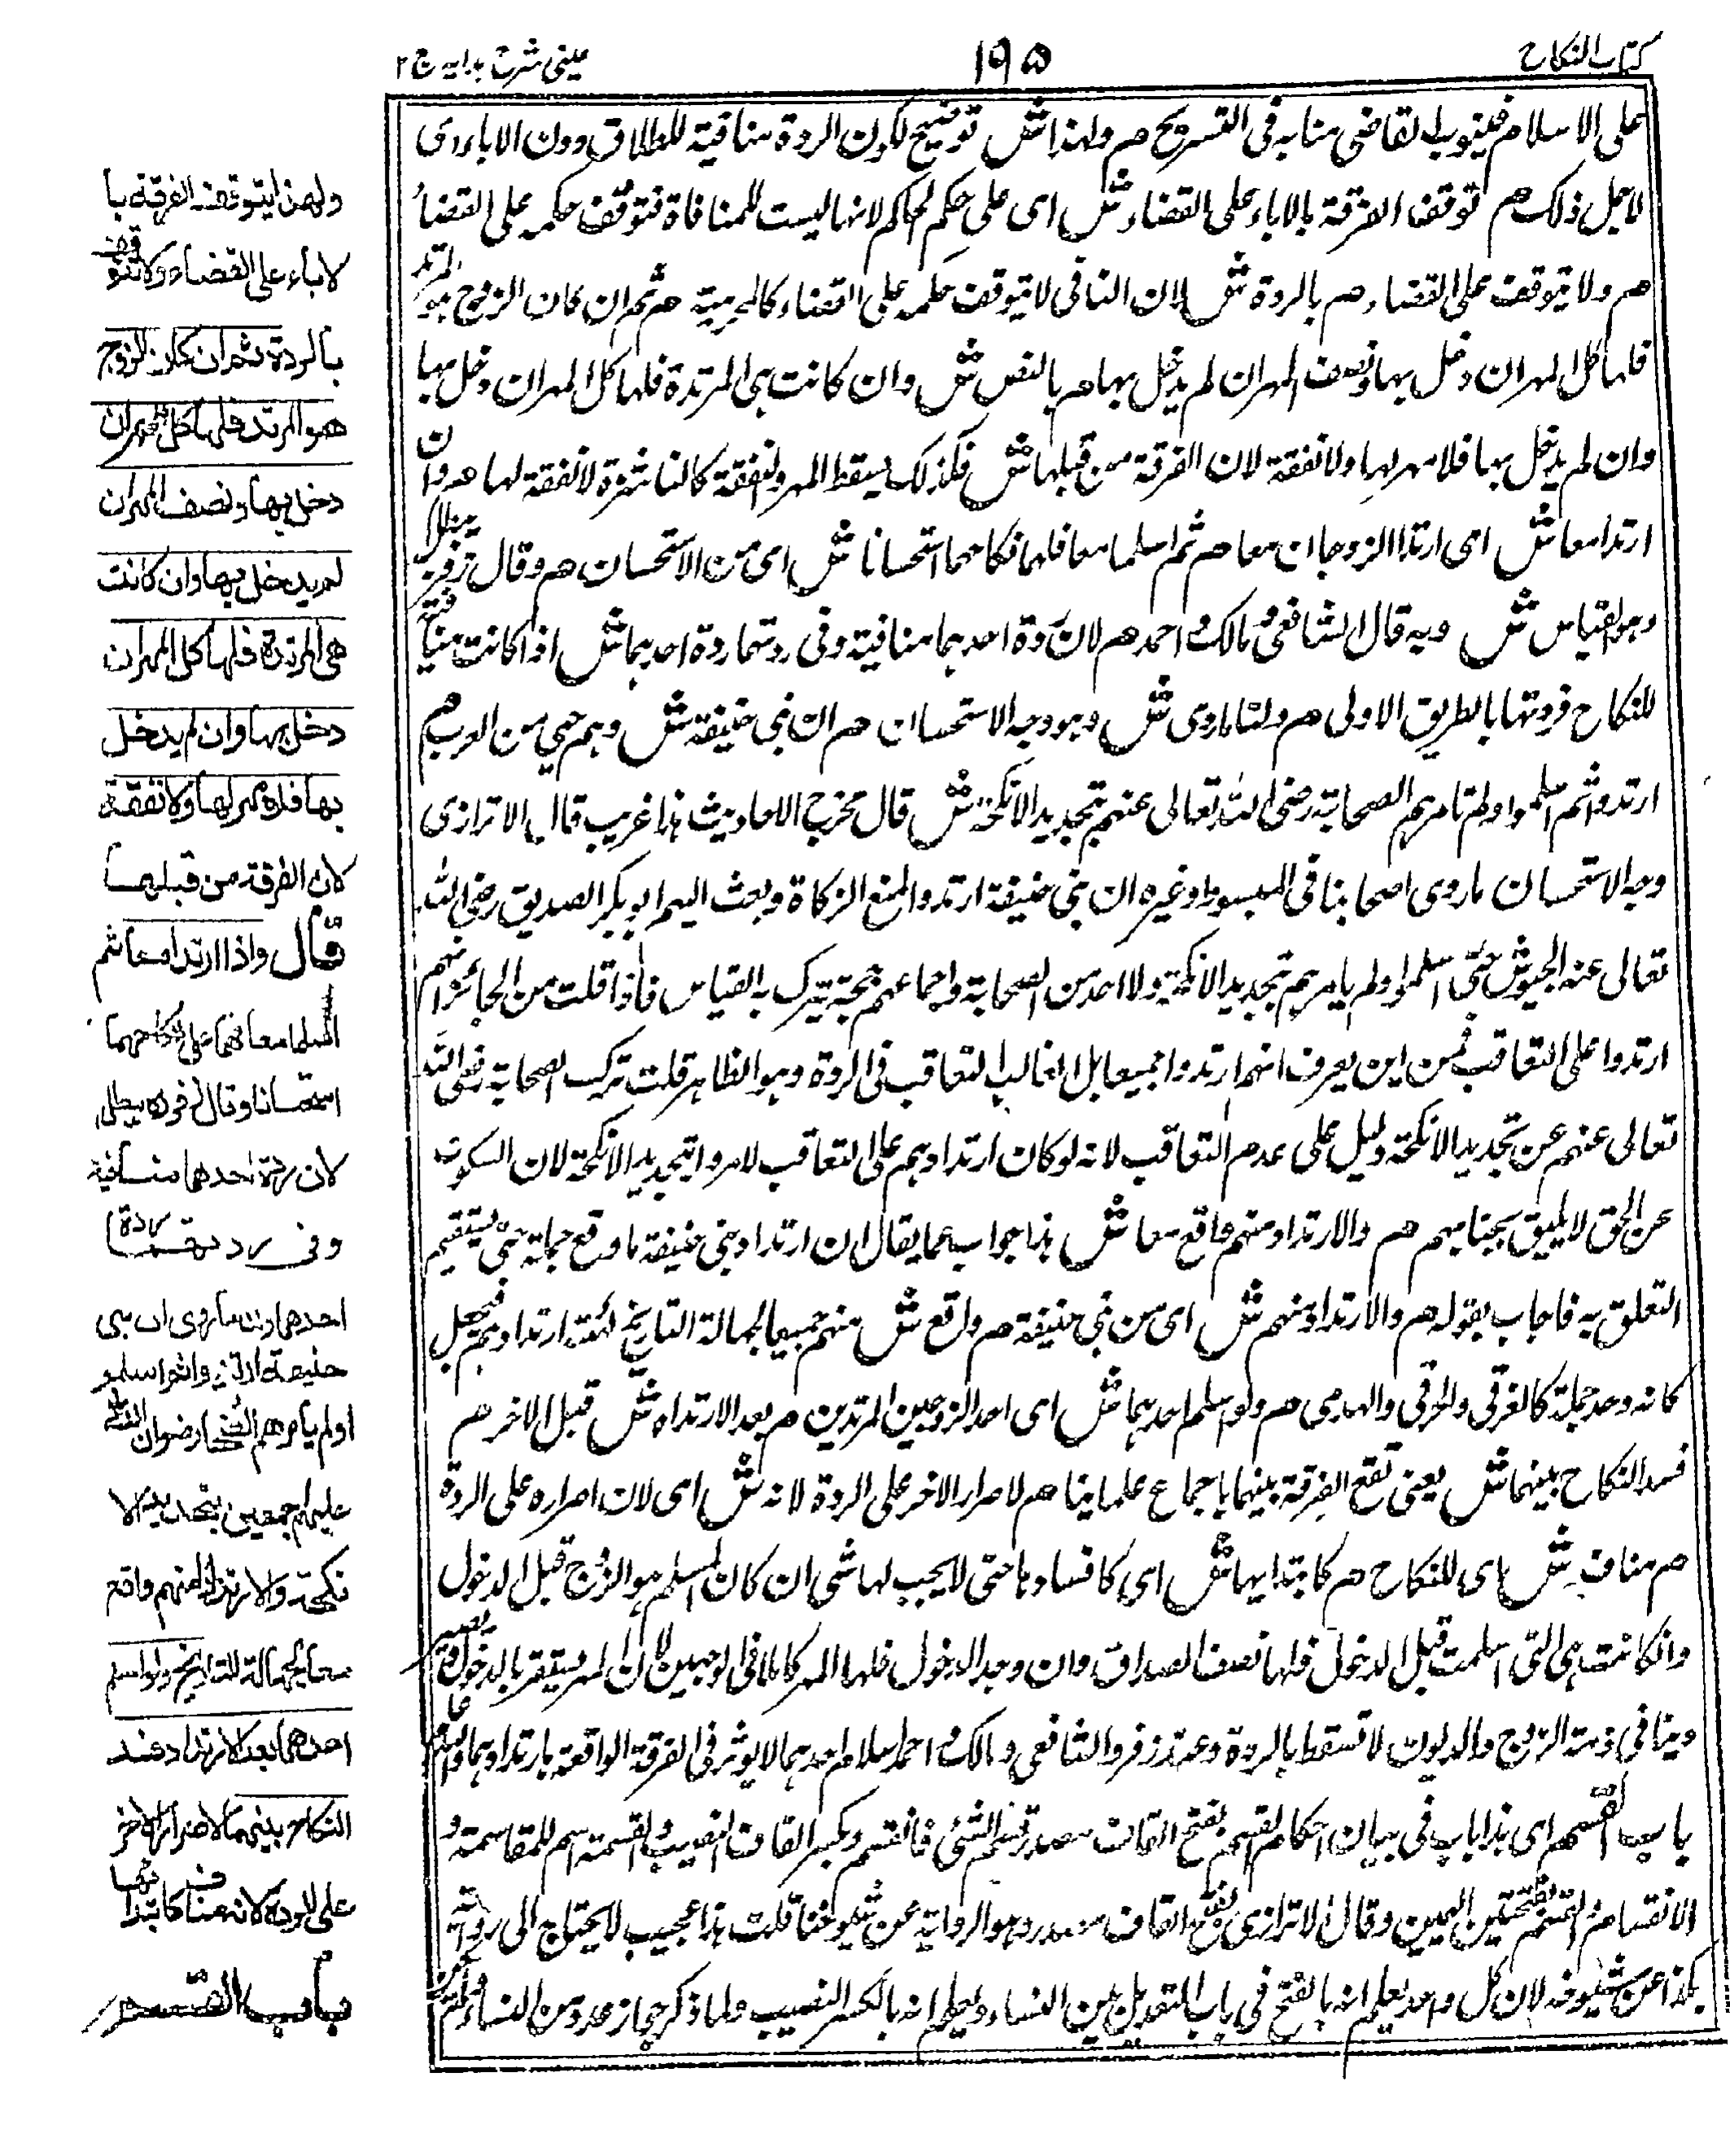 كتاب النكاح
١٩٥
عينى شرح هدايه ج ٢
على الاسلام فينوب القاضى منابه فى التسريح هم ولهذا ش توضيح لكون الردة منافية للطلاق دون الاباء اى
لاجل ذلك هم توقف الفرقة بالاباء على القضاء ش اى على حكم الحاكم لانها ليست للمنافاة فتوقف حكمه على القضاء
هم ولا يتوقف على القضاء هم بالردة ش لان النافى لا يتوقف حكمه على القضاء كالمحرمية هم ثم ان كان الزوج هو المرتد
فلها كل المهر ان دخل بها ونصف المهر ان لم يدخل بها هم بالنص ش وان كانت هى المرتدة فلها كل المهر ان دخل بها
وان لم يدخل بها فلا مهر لها ولا نفقة لان الفرقة من قبلها ش فلذلك يسقط المهر والنفقة كالناشزة لا نفقة لها هم وان
ارتدا معا ش اى ارتدا الزوجان معا هم ثم اسلما معا فهما على نكاحهما استحسانا ش اى من الاستحسان هم وقال زفر يبطل
وهو القياس ش وبه قال الشافعى و مالك و احمد هم لان ردة احدهما منافية وفى ردتهما ردة احدهما ش اذا كانت منافية
للنكاح فردتهما بالطريق الاولى هم ولنا ما روى ش وهو وجه الاستحسان هم ان بنى حنيفة ش وهم حى من العرب هم
ارتدوا ثم اسلموا ولم تامرهم الصحابة رضى الله تعالى عنهم بتجديد الانكحة ش قال مخرج الاحاديث هذا غريب قال الاترازى
وجه الاستحسان ما روى اصحابنا فى المبسوط وغيره ان بنى حنيفة ارتدوا لمنع الزكاة وبعث اليهم ابو بكر الصديق رضى الله
تعالى عنه الجيوش حتى اسلموا ولم يامرهم بتجديد الانكحة ولا احد من الصحابة واجماعهم حجة يترك به القياس فاذا قلت من الجائز انهم
ارتدوا على التعاقب فمن اين يعرف انهم ارتدوا جميعا بل الغالب التعاقب فى الردة وهو الظاهر قلت ترك الصحابة رضى الله
تعالى عنهم عن تجديد الانكحة دليل على عدم التعاقب لانه لو كان ارتدادهم على التعاقب لامروا بتجديد الانكحة لان السكوت
عن الحق لا يليق بجنابهم هم والارتداد منهم واقع معا ش هذا جواب عما يقال ان ارتداد بنى حنيفة ما وقع جملة حتى يستقيم
التعلق به فاجاب بقوله هم والارتداد منهم ش اى من بنى حنيفة هم واقع ش منهم جميعا لجهالة التاريخ ارتدادهم فيجعل
كانه وجد جملة كالغرقى والحرقى والهدمى هم ولو اسلم احدهما ش اى احد الزوجين المرتدين هم بعد الارتداد ش قبل الاخر هم
فسد النكاح بينهما ش يعنى تقع الفرقة بينهما باجماع علماينا هم لاصرار الاخر على الردة لانه ش اى لان اصراره على الردة
هم مناف ش اى للنكاح هم كابتدايها ش اى كافسادها حتى لا يجب لها شى ان كان المسلم هو الزوج قبل الدخول
وان كانت هى التى اسلمت قبل الدخول فلها نصف الصداق وان وجد الدخول فلها المهر كاملا فى الوجهين لان المهر يستقر بالدخول
دينا فى ذمة الزوج والديون لا تسقط بالردة وعند زفر والشافعى و مالك و احمد اسلام احدهما لا يوثر فى الفرقة الواقعة بارتدادهما
باب القسم هم اى هذا باب فى بيان احكام القسم بفتح القاف مصدر قسم الشئ فانقسم وبكسر القاف النصيب والقسمة اسم للمقاسمة و
الانقسام والقسم بفتحتين اليمين وقال الاترازى بفتح القاف مصدر وهو الرواية عن شيوخنا قلت هذا عجيب لا يحتاج الى رواية
هكذا عن شيوخه لان كل واحد يعلم انه بالفتح فى باب التعديل بين النساء ويعلم انه بالكسر النصيب ولما ذكر جواز عدد من النساء
ولهذا يتوقف الفرقة با
لاباء على القضاء ولا تتوقف
بالردة ثم ان كان الزوج
هو المرتد فلها كل المهر ان
دخل بها ونصف المهر ان
لم يدخل بها وان كانت
هى المرتدة فلها كل المهر ان
دخل بها وان لم يدخل
بها فلا مهر لها ولا نفقة
لان الفرقة من قبلها
قال واذا ارتدا معا ثم
اسلما معا فهما على نكاحهما
استحسانا وقال زفر يبطل
لان ردة احدهما منافية
وفى ردتهما ردة
احدهما ولنا ما روى ان بنى
حنيفة ارتدوا ثم اسلمو
اولم يأمرهم الصحابة رضوان الله
عليهم اجمعين بتجديد الا
نكحة والارتداد منهم واقع
معا لجهالة التاريخ ولو اسلم
احدهما بعد الارتداد فسد
النكاح بينهما لاصرار الاخر
على الردة لانه مناف كابتدائها
باب القسم